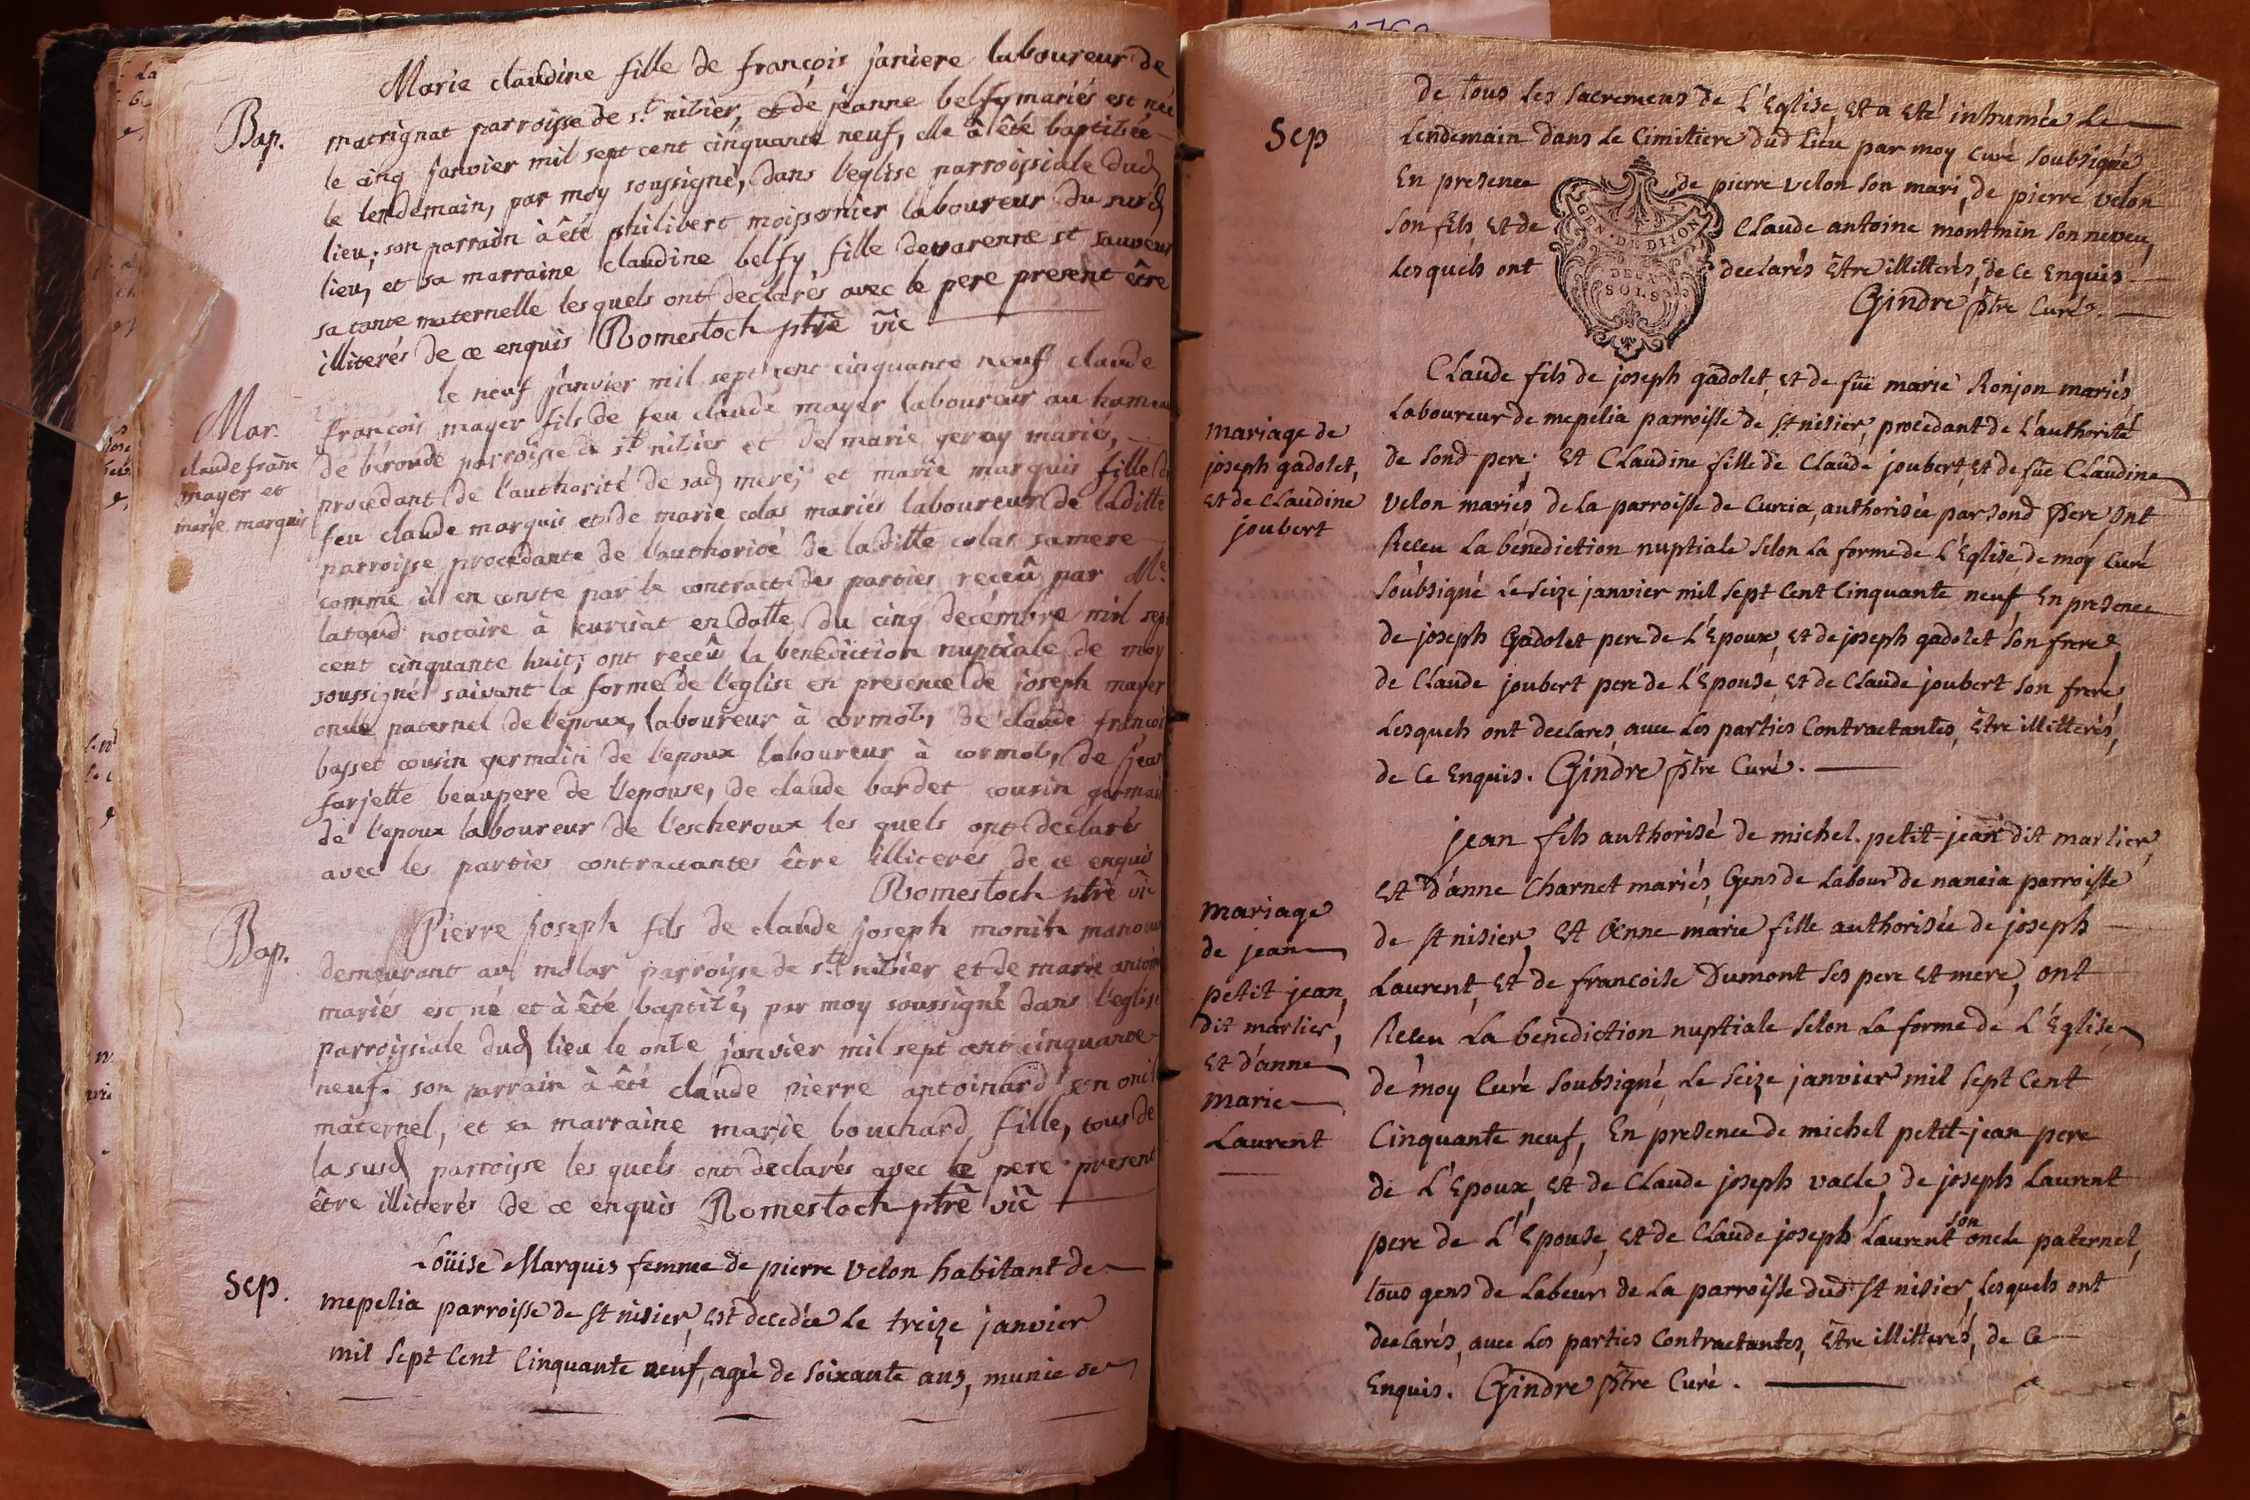 Marie claudine fille de françois janiere laboureur de
Bap.
matrignat parroisse de st nitier, et de jeanne belfy mariés est née
le cinq janvier mil sept cent cinquante neuf, elle à été baptisée
le lendemain, par moy soussigné, dans l'eglise parroissiale dud
lieu, son parrain à été philibert moissonnier laboureur du susd
lieu, et sa marraine claudine belfy fille de varenne st sauveur
sa tante maternelle lesquels ont declarés avec le pere present être
illiterés de ce enquis Romestoch ptre vic
le neuf janvier mil sept cent cinquante neuf claude
Mar.
claude franc
mayer et
marie marquis
françois mayer fils de feu claude mayer laboureur au hameau
de béronde parroisse de st nitier et de marie geray mariés,
procedant de l'authorité de sad mere; et marie marquis fille de
feu claude marquis et de marie colas mariés laboureur de laditte
parroisse procedante de l'authorité de laditte colas sa mere
comme il en conste par le contract des parties receû par Me
latoud notaire à curciat en datte du cinq decembre mil sept
cent cinquante huit; ont receû la benediction nuptiale de moy
soussigné suivant la forme de l'eglise en presence de joseph mayer
oncle paternel de l'epoux, laboureur à cormoz, de claude francois
basset cousin germain de l'epoux laboureur à cormoz, de jean
farjette beaupere de l'epouse, de claude bardet cousin germain
de l'epoux laboureur de l'escheroux les quels ont declarés
avec les parties contractantes être illiterés de ce enquis
Romestoch ptre vic
Bap.
Pierre joseph fils de claude joseph monin manouv
demeurant au molar parroisse de st nitier et de marie antoin
mariés est né et à été baptisé, par moy soussigné dans l'eglise
parroissiale dud lieu le onze janvier mil sept cent cinquante
neuf. son parrain à été claude pierre antoinard son oncle
maternel, et sa marraine marie bouchard fille, tous de
la susd parroisse les quels ont declarés avec le pere present
être illiterés de ce enquis Romestoch ptre vic
Sep.
Loüise Marquis femme de pierre velon habitant de
mepelia parroisse de st nisier, est decedée le treize janvier
mil sept cent cinquante neuf, agée de soixante ans, munie de
Sep
de tous les sacremens de l'Eglise, et a eté inhumée le
lendemain dans le cimitiere dud lieu par moy curé soubsigné
En presence de pierre velon son mari, de pierre velon
son fils, et de Claude antoine montmin son neveu,
lesquels ont declarés être illitterés, de ce enquis
Gindre ptre curé.
GEN. DE DIJON
DEUX
SOLS
mariage de
joseph gadolet,
et de claudine
joubert
Claude fils de joseph gadolet, et de füe marie Ronjon mariés
laboureur de mepelia parroisse de st nisier, procedant de l'authorité
de sond pere, et Claudine fille de Claude joubert, et de füe Claudine
velon mariés de la parroisse de Curcia, authorisée par sond pere ont
Receu la benediction nuptiale selon la forme de l'Eglise de moy curé
soubsigné le seize janvier mil sept cent cinquante neuf, en presence
de joseph Gadolet pere de l'Epoux, et de joseph gadolet son frere,
de Claude joubert pere de l'Epouse, et de Claude joubert son frere,
lesquels ont declarés, avec les parties contractantes, être illitterés,
de ce enquis. Gindre ptre Curé.
mariage
de jean
petit jean,
dit marlier,
et d'anne
marie
Laurent
jean fils authorisé de michel petit-jean dit marlier,
et d'anne Charnet mariés, Gens de labour de nancia parroisse
de st nisier, et Anne marie fille authorisée de joseph
Laurent, et de francoise Dumont ses pere et mere, ont
Receu la benediction nuptiale selon la forme de l'Eglise
de moy Curé soubsigné, le seize janvier mil sept cent
Cinquante neuf, En presence de michel petit-jean pere
de l'Epoux, et de Claude joseph vacle, de joseph Laurent
pere de l'Epouse, et de Claude joseph Laurent son oncle paternel,
tous gens de labeur de la parroisse dud st nisier, lesquels ont
declarés, avec les parties contractantes, être illitterés, de ce
enquis. Gindre ptre Curé.